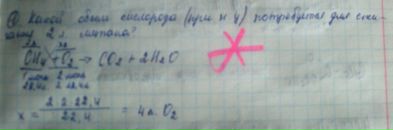 Какой объём кислорода (при н.у) потребуется для сжи-
гания 2 л. метана?
2л хл
CH₄ + O₂ → CO₂ + 2H₂O
1 моль 2 моль
22,4л. 2·22,4л.
x = 2·2·22,4 / 22,4 = 4л. O₂